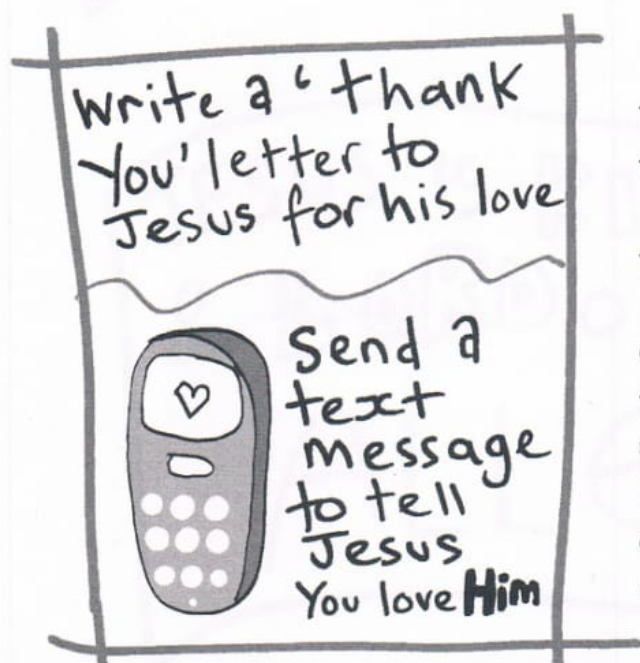 Write a 'thank
You' letter to
Jesus for his love
Send a
text
message
to tell
Jesus
You love Him